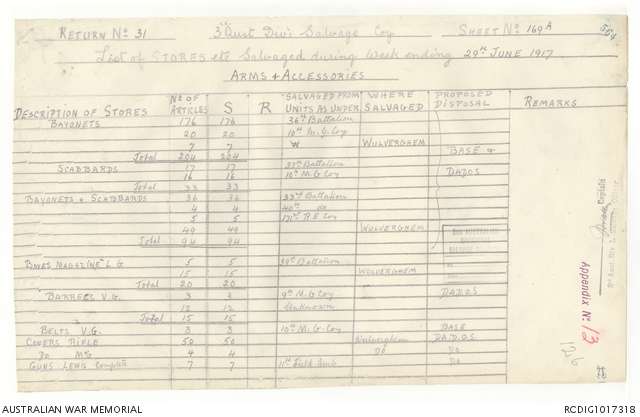 RETURN No 31 3rd Aust Divn Salvage Coy SHEET No 169A
List of STORES etc Salvaged during Week ending 29th JUNE 1917
ARMS & ACCESSORIES
DESCRIPTION OF STORES No OF ARTICLES S R SALVAGED FROM UNITS AS UNDER WHERE SALVAGED PROPOSED DISPOSAL REMARKS
BAYONETS 176 176 36th Battalion
20 20 10th M.G. Coy
7 7 WULVERGHEM
Total 204 204 BASE
SCABBARDS 17 17 Battalion
16 16 10th M.G Coy DADOS
Total 33 33
BAYONETS & SCABBARDS 36 36 33rd Battalion
4 4 40th do
5 5 171st R.E Coy
49 49 WULVERGHEM
Total 94 94
BOXES MAGAZINE L.G 5 5 39th Battalion
15 15 WULVERGHEM
Total 20 20
BARRELS V.G. 3 3 9th M.G Coy DADOS
12 12 Unknown
Total 15 15
BELTS V.G. 3 3 10th M.G. Coy BASE
COVERS RIFLE 50 50 Wulverghem DADOS
Do MG 4 4 Do Do
GUNS LEWIS Complete 7 7 11th Field Amb Do
Appendix No 13
126
AUSTRALIAN WAR MEMORIAL
RCDIG1017318